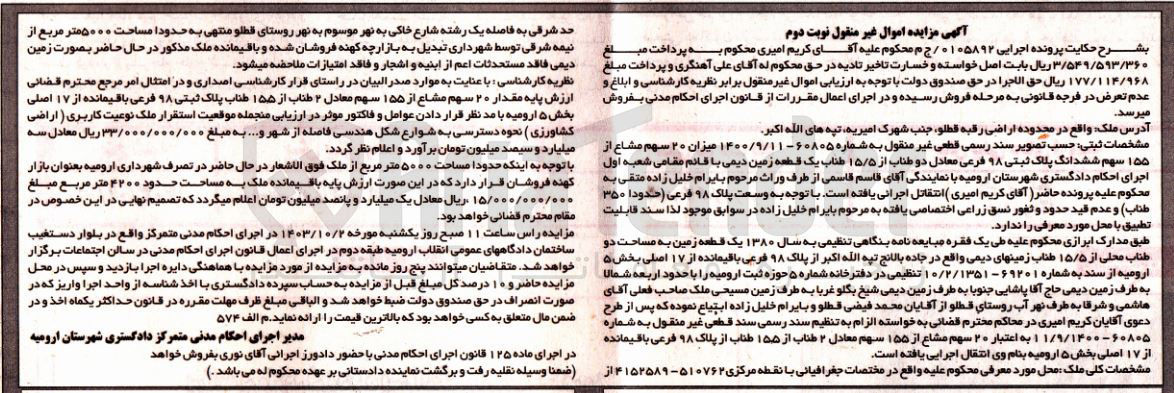 آگهی مزایده اموال غیر منقول نوبت دوم
بشرح حکایت پرونده اجرایی ۰۱۰۵۸۹۲/ج م محکوم علیه آقای کریم امیری محکوم به پرداخت مبلغ
۳/۵۴۹/۵۹۳/۳۶۰ ریال بابت اصل خواسته و خسارت تاخیر تادیه در حق محکوم له آقای علی آهنگری و پرداخت مبلغ
۱۷۷/۱۱۴/۹۶۸ ریال حق الاجرا در حق صندوق دولت با توجه به ارزیابی اموال غیر منقول برابر نظریه کارشناسی و ابلاغ و
عدم تعرض در فرجه قانونی به مرحله فروش رسیده و در اجرای اعمال مقررات از قانون اجرای احکام مدنی بفروش
میرسد.
آدرس ملک: واقع در محدوده اراضی رقبه قطلو، جنب شهرک امیریه، تپه های الله اکبر.
مشخصات ثبتی: حسب تصویر سند رسمی قطعی غیر منقول به شماره ۶۰۸۰۵-۱۴۰۰/۹/۱۱ میزان ۲۰ سهم مشاع از
۱۵۵ سهم ششدانگ پلاک ثبتی ۹۸ فرعی معادل دو طناب از ۱۵/۵ طناب یک قطعه زمین دیمی با قائم مقامی شعبه اول
اجرای احکام دادگستری شهرستان ارومیه با نمایندگی آقای قاسم قاسمی از طرف وراث مرحوم بایرام خلیل زاده متقی به
محکوم علیه پرونده حاضر (آقای کریم امیری) انتقال اجرائی یافته است. با توجه به وسعت پلاک ۹۸ فرعی (حدودا ۳۵۰
طناب) و عدم قید حدود و ثغور نسق زراعی اختصاصی یافته به مرحوم بایرام خلیل زاده در سوابق موجود لذا سند قابلیت
تطبیق با محل مورد معرفی را ندارد.
طبق مدارک ابرازی محکوم علیه طی یک فقره مبایعه نامه بنگاهی تنظیمی به سال ۱۳۸۰ یک قطعه زمین به مساحت دو
طناب محلی از ۱۵/۵ طناب زمینهای دیمی واقع در جاده بالانج تپه الله اکبر از پلاک ۹۸ فرعی باقیمانده از ۱۷ اصلی بخش ۵
ارومیه از سند به شماره ۶۹۲۰۱-۱۰/۲/۱۳۵۱ تنظیمی در دفترخانه شماره ۵ حوزه ثبت ارومیه را با حدود اربعه شمالا
به طرف زمین دیمی حاج آقا پاشایی جنوبا به طرف زمین دیمی شیخ بگلو غربا به طرف زمین مسیحی ملک صاحب فعلی آقای
هاشمی و شرقا به طرف نهر آب روستای قطلو از آقایان محمد فیضی قطلو و بایرام خلیل زاده ابتیاع نموده که پس از طرح
دعوی آقایان کریم امیری در محاکم محترم قضائی به خواسته الزام به تنظیم سند رسمی سند قطعی غیر منقول به شماره
۶۰۸۰۵-۱۱/۹/۱۴۰۰ به اعتبار ۲۰ سهم مشاع از ۱۵۵ سهم معادل ۲ طناب از ۱۵,۵ طناب از پلاک ۹۸ فرعی باقیمانده
از ۱۷ اصلی بخش ۵ ارومیه بنام وی انتقال اجرایی یافته است.
مشخصات کلی ملک: محل مورد معرفی محکوم علیه واقع در مختصات جغرافیائی با نقطه مرکزی ۵۱۰۷۶۲-۴۱۵۲۵۸۹ از
حد شرقی به فاصله یک رشته شارع خاکی به نهر موسوم به نهر روستای قطلو منتهی به حدودا مساحت ۵۰۰۰متر مربع از
نیمه شرقی توسط شهرداری تبدیل به بازارچه کهنه فروشان شده و باقیمانده ملک مذکور در حال حاضر بصورت زمین
دیمی فاقد مستحدثات اعم از ابنیه و اشجار و فاقد امتیازات ملاحضه میشود.
نظریه کارشناسی: با عنایت به موارد صدر البیان در راستای قرار کارشناسی اصداری و در امتثال امر مرجع محترم قضائی
ارزش پایه مقدار ۲۰ سهم مشاع از ۱۵۵ سهم معادل ۲ طناب از ۱۵,۵ طناب پلاک ثبتی ۹۸ فرعی باقیمانده از ۱۷ اصلی
بخش ۵ ارومیه با مد نظر قرار دادن عوامل و فاکتور موثر در ارزیابی منجمله موقعیت استقرار ملک نوعیت کاربری (اراضی
کشاورزی) نحوه دسترسی به شوارع شکل هندسی فاصله از شهر و... به مبلغ ۳۳/۰۰۰/۰۰۰/۰۰۰ ریال معادل سه
میلیارد و سیصد میلیون تومان برآورد و اعلام نظر گردد.
با توجه به اینکه حدودا مساحت ۵۰۰۰متر مربع از ملک فوق الاشعار در حال حاضر در تصرف شهرداری ارومیه بعنوان بازار
کهنه فروشان قرار دارد که در این صورت ارزش پایه باقیمانده ملک به مساحت حدود ۴۲۰۰ متر مربع مبلغ
۱۵/۰۰۰/۰۰۰/۰۰۰ ریال معادل یک میلیارد و پانصد میلیون تومان اعلام میگردد که تصمیم نهایی در این خصوص در
مقام محترم قضائی خواهد بود.
مزایده راس ساعت ۱۱ صبح روز یکشنبه مورخه ۱۴۰۳/۱۰/۲ در اجرای احکام مدنی متمرکز واقع در بلوار دستغیب
ساختمان دادگاههای عمومی انقلاب ارومیه طبقه دوم در اجرای اعمال قانون اجرای احکام مدنی در سالن اجتماعات برگزار
خواهد شد. متقاضیان میتوانند پنج روز مانده به مزایده از مورد مزایده با هماهنگی دایره اجرا بازدید و سپس در محل
مزایده حاضر و ۱۰ درصد کل مبلغ قبل از مزایده به حساب سپرده دادگستری با اخذ شناسه از واحد اجرا واریز که در
صورت انصراف در حق صندوق دولت ضبط خواهد شد و الباقی مبلغ ظرف مهلت مقرره در قانون حداکثر یکماه اخذ و در
ضمن مال متعلق به کسی خواهد بود که بالاترین قیمت را ارائه نماید.م الف ۵۷۴
مدیر اجرای احکام مدنی متمرکز دادگستری شهرستان ارومیه
در اجرای ماده ۱۲۵ قانون اجرای احکام مدنی با حضور دادورز اجرائی آقای نوری بفروش خواهد
(ضمنا وسیله نقلیه رفت و برگشت نماینده دادستانی بر عهده محکوم له می باشد.)